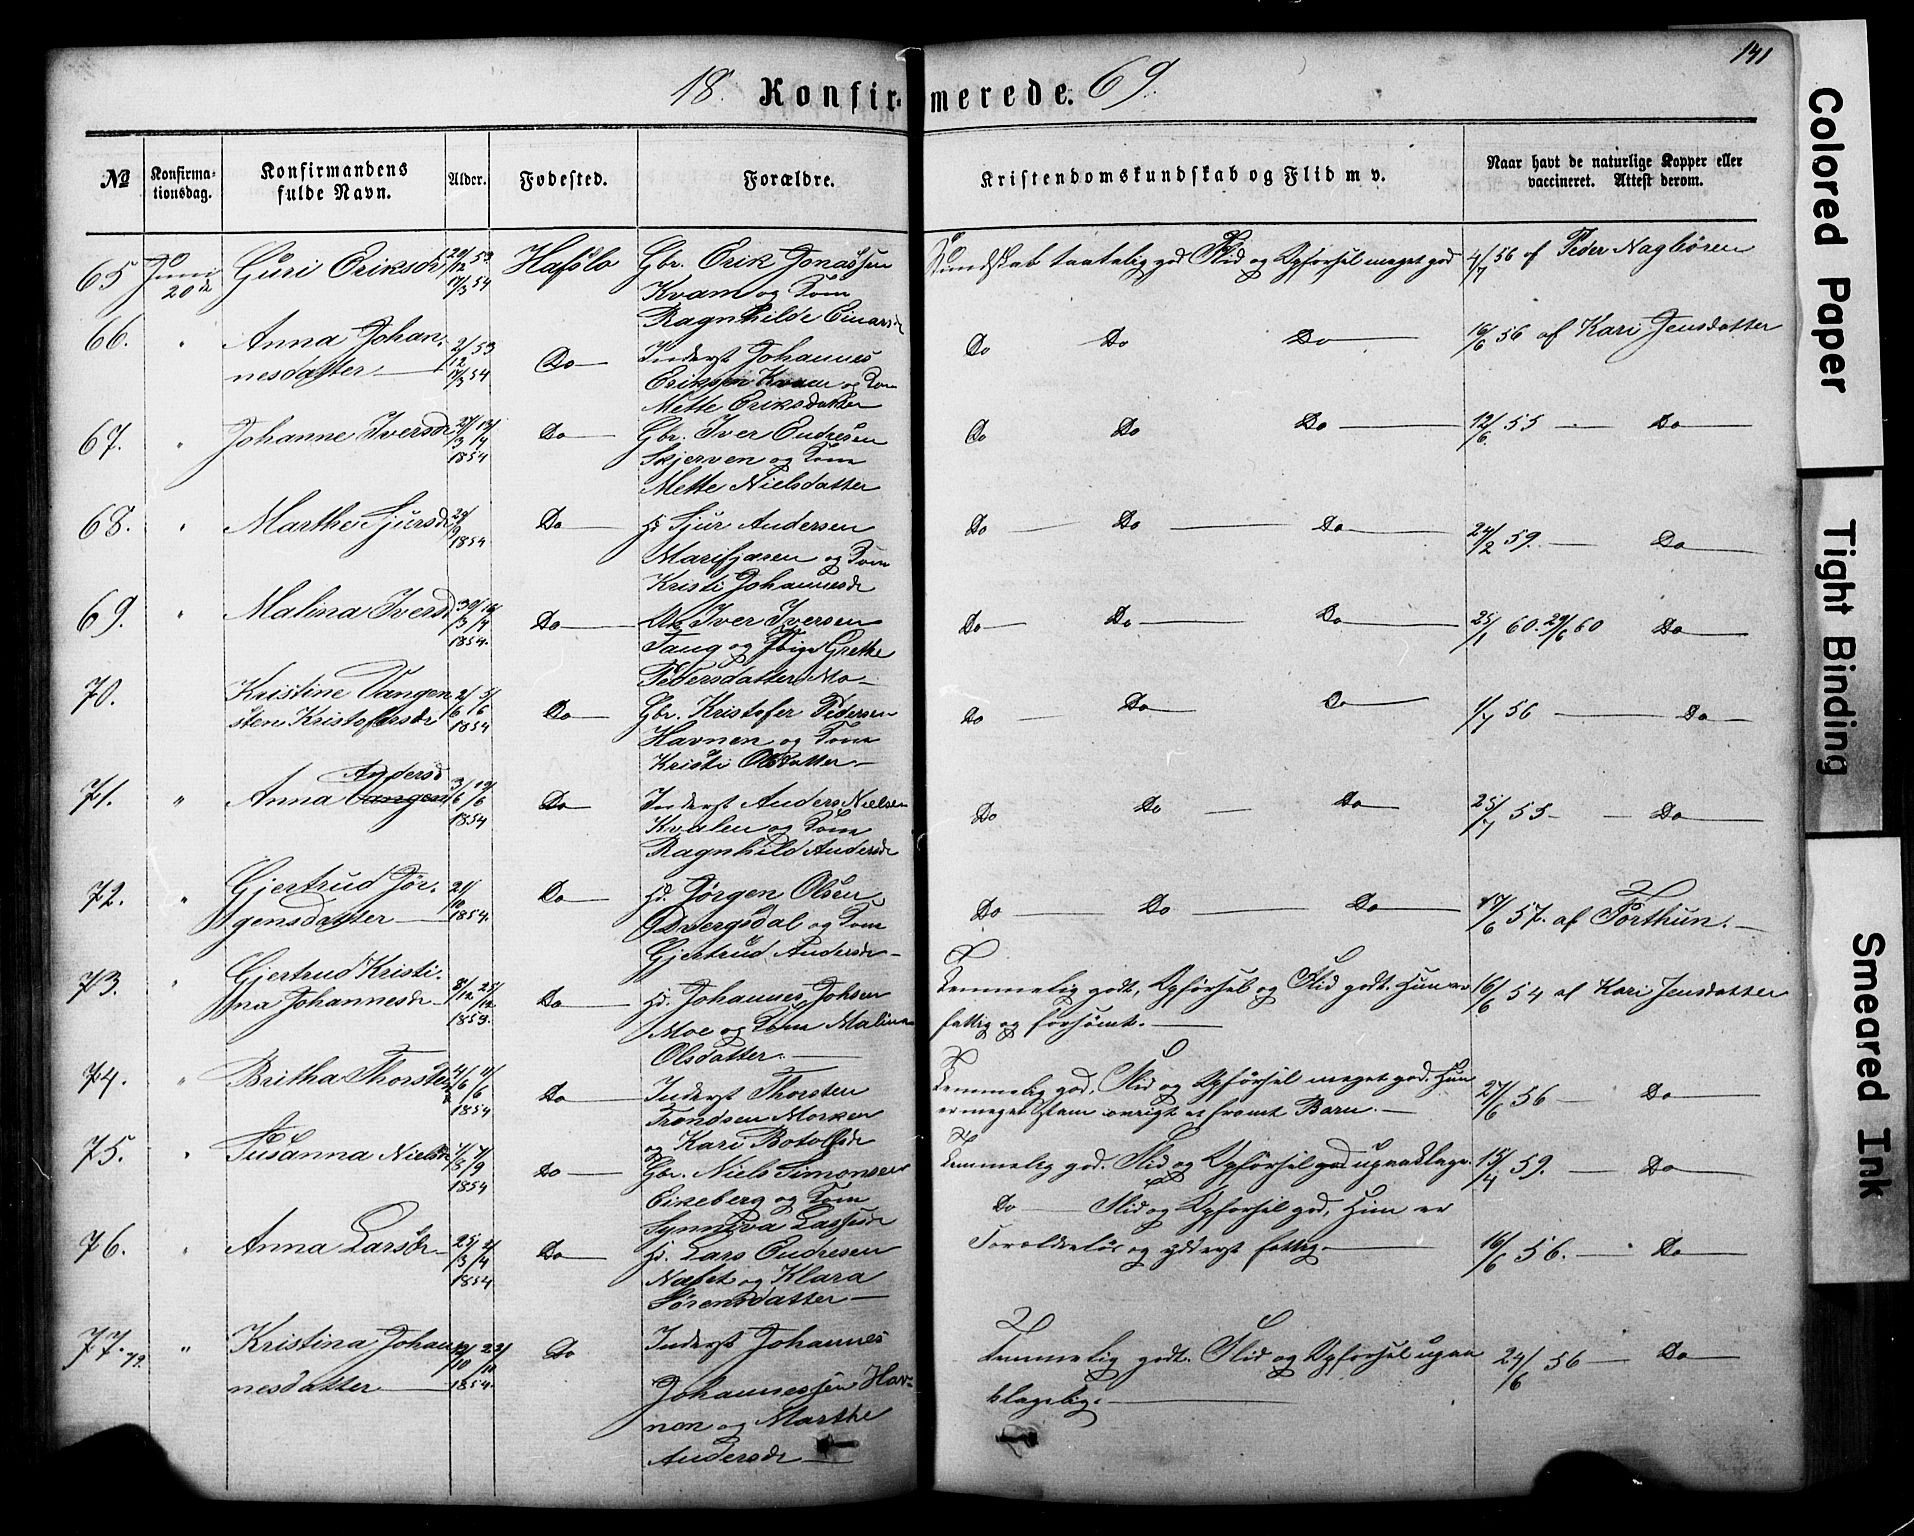 141
18 Konfirmerede. 69.
№ Konfirmationsdag. Konfirmandens fulde Navn. Alder. Fødested. Forældre. Kristendomskundskab og Flid m v. Naar havt de naturlige Kopper eller vaccineret. Attest derom.
65 Juni 20de Guri Eriksdr 12 53 17/3 54 Hafslo Gbr. Erik Jonassen Kvam og Kone Ragnhilde Einarsdr Kundskab taalelig god Flid og Opførsel meget god 4/7 56 af Peder Nagløren
66. " Anna Johannesdatter 2/12 53 17/3 54 Do Inderst Johannes Eriksen Kvam og Kone Mette Eriksdatter Do Do Do 16/6 56 af Kari Jensdatter
67. " Johanne Iversdr 27/3 17/4 1854 Do Gbr. Iver Endresen Skjerven og Kone Mette Nielsdatter Do Do Do 12/6 55 Do
68. " Marthe Sjursdr 29/9 1854 Do Hd. Sjur Andersen Marifjæren og Kone Kristi Johannesdr Do Do Do 24/2 59. Do
69. " Malina Iversd 30/3 16/4 1854. Do Iver Iversen Tang og Pige Grethe Pedersdatter Mo Do Do Do 25/1 60. 29/6 60 Do
70. Kristine Vangensten Kristofersdr 2/6 5/6 1854 Do Gbr. Kristofer Pedersen Havnen og Kone Kristi Olsdatter Do Do Do 1/7 56 Do
71. " Anna Andersd Vangen 3/6 19/6 1854 Do Inderst Anders Nielsen Kvalen og Kone Ragnhild Andersdr Do Do Do 25/7 55 Do
72. " Gjertrud Jørgensdatter 21/10 1854. Do Hd. Jørgen Olsen Dvergsdal og Kone Gjertrud Andersdr Do Do Do 17/6 57. af Forthun.
73. " Gjertrud Kristina Johannesdr 8/12 25/12 1853. Do Hd. Johannes Johsen Moe og Kone Malina Olsdatter. Temmelig godt, Opførsel og Flid godt. Hun er fattig og forsømt. 16/6 54 af Kari Jensdatter
74. " Britha Thorstensdr 4/6 11/6 1854 Do Inderst Thorsten Trondsen Morken og Kari Botolfsdr Temmelig god, Flid og Opførsel meget god. Hun er meget stam øvrigt et fromt Barn. 27/6 56 Do
75. " Susanna Nielsdr 7/9 1854 Do Gbr. Niels Simonsen Eikeberg og Kone Synneva Lassesdr Temmelig god. Flid og Opførsel god upaaklage. 15/4 59. Do
76. " Anna Larsdr 25/3 2/4 1854 Do Hd. Lars Endresen Næset og Klara Sørensdatter Do Flid og Opførsel god, Hun er Forældreløs og yderst fattig. 16/6 56. Do
77. 79. " Kristina Johannesdatter 12/10 22/10 1854. Do Inderst Johannes Johannessen Havnen og Marthe Andersdr Temmelig godt. Flid og Opførsel upaaklagelig. 24/6 56 Do
Colored Paper
Tight Binding
Smeared Ink